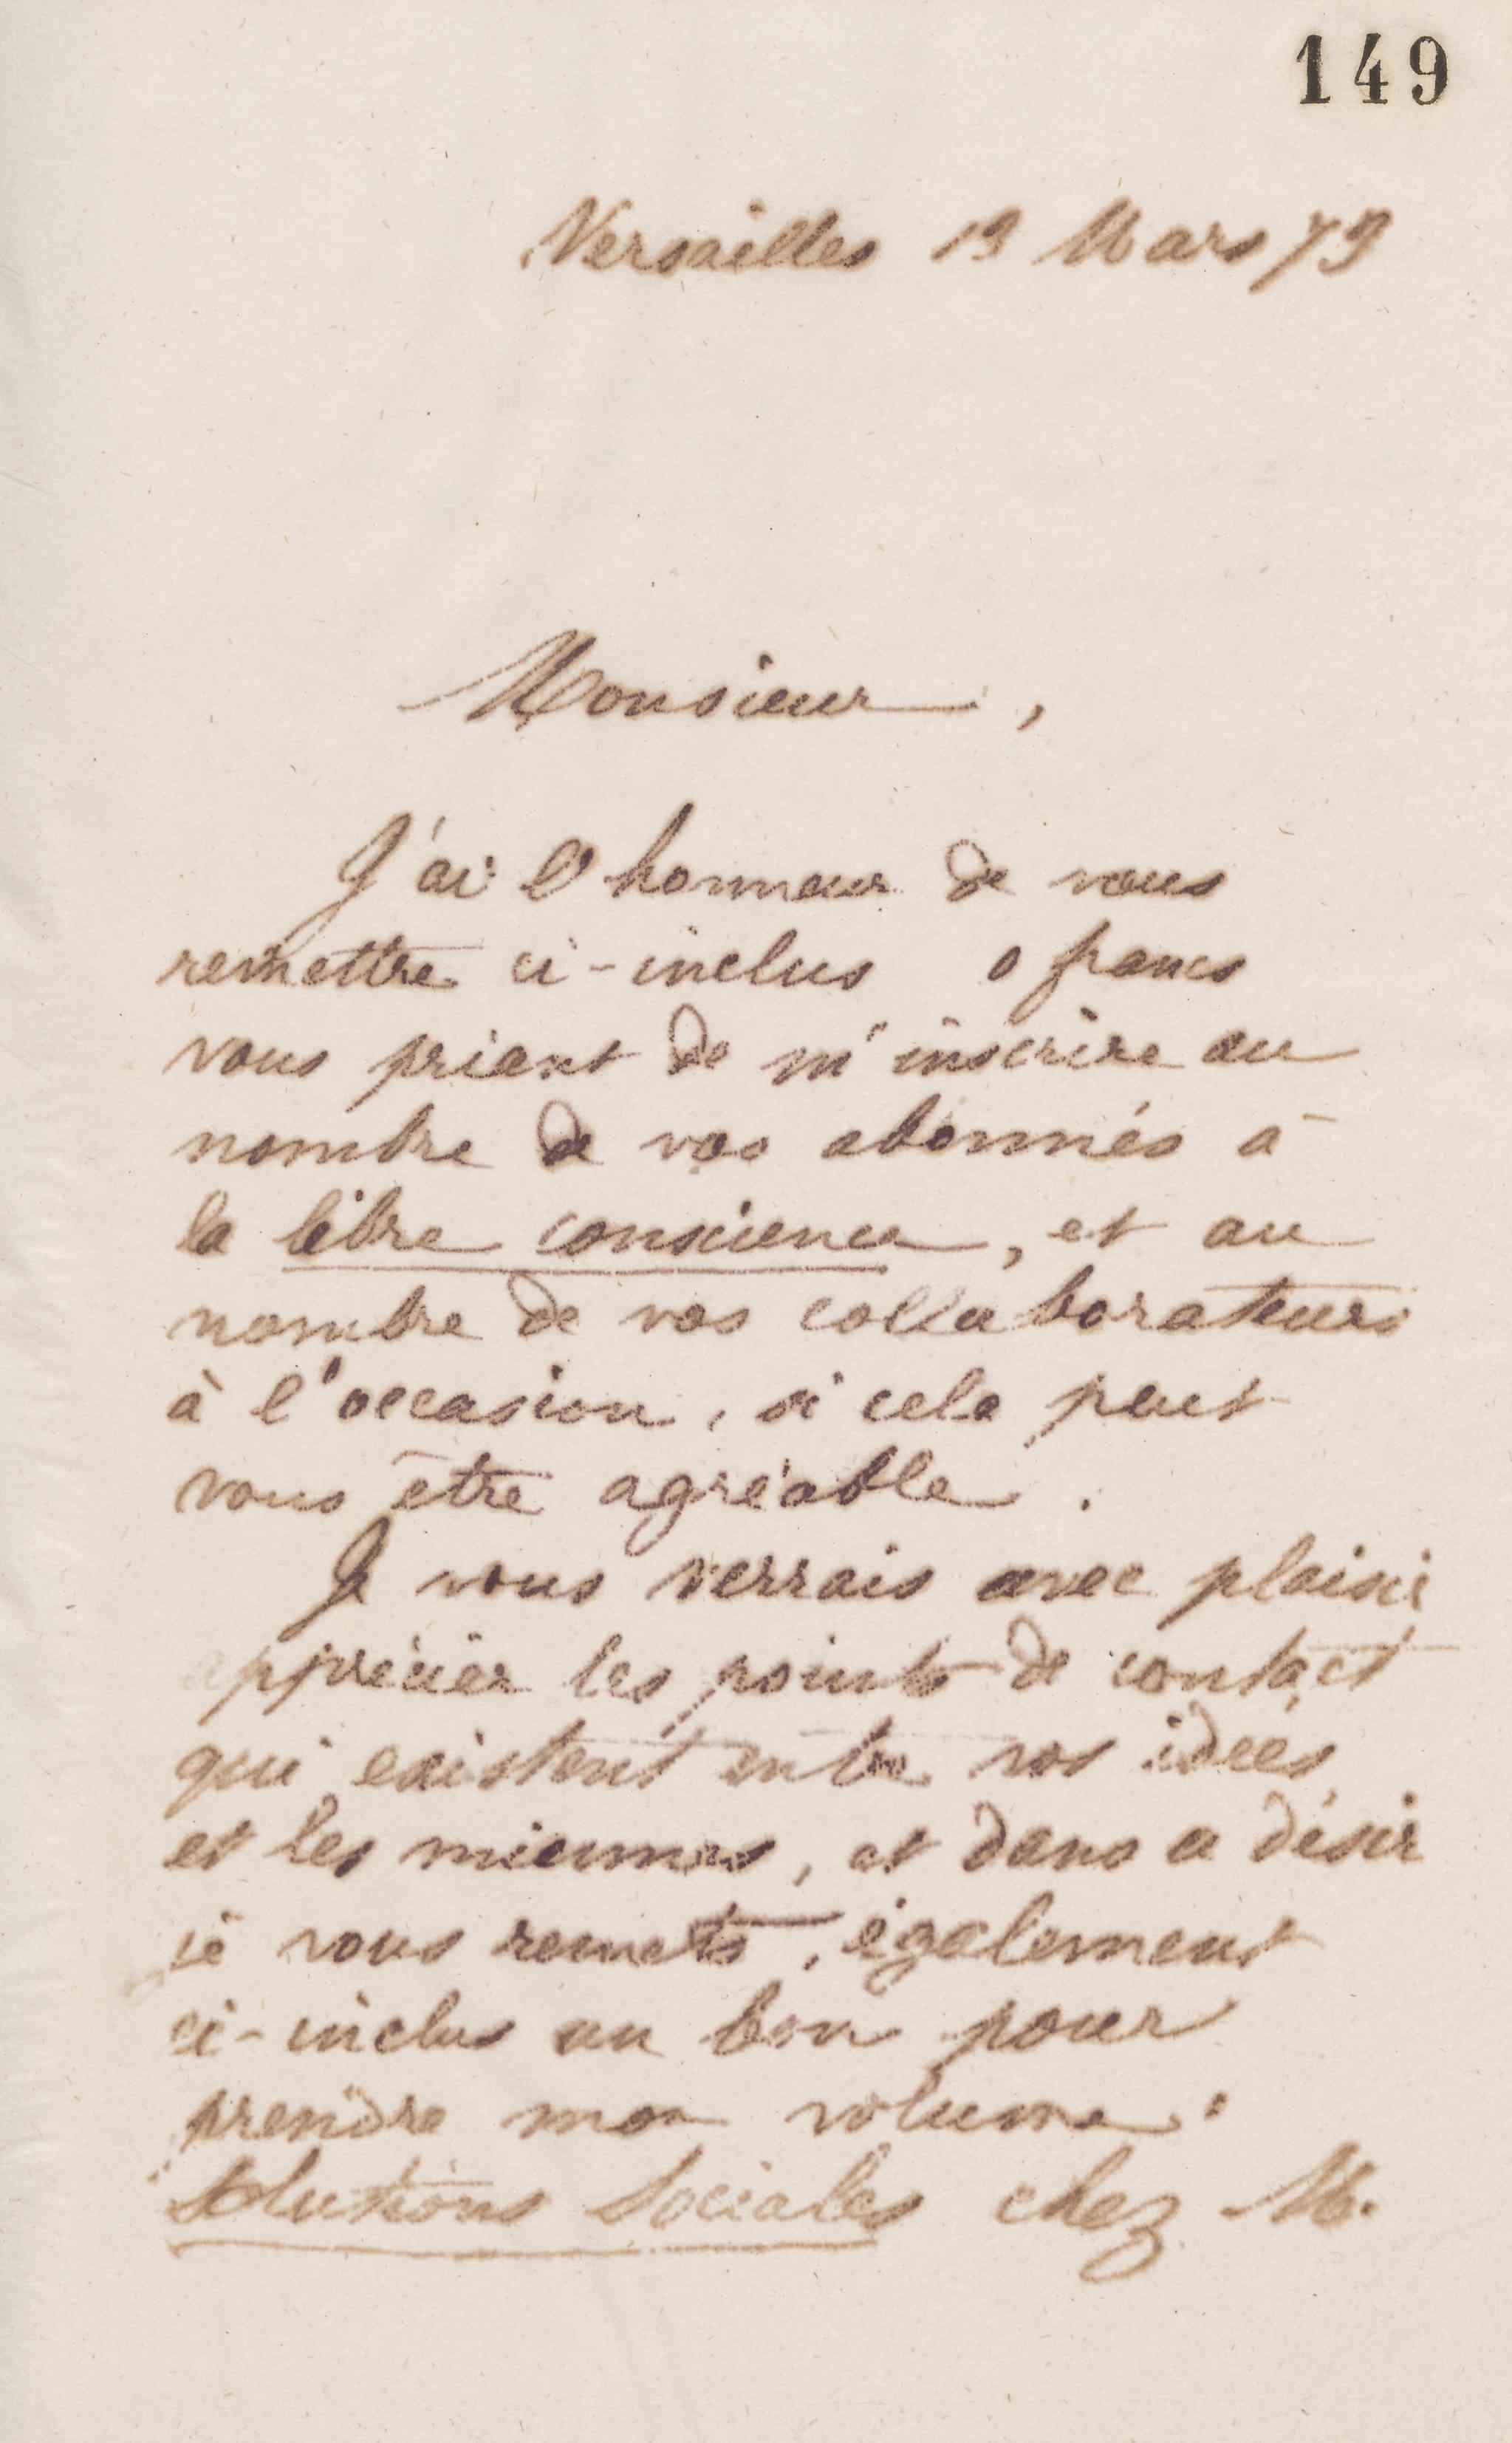 149
Versailles 19 Mars 79
Monsieur,
J'ai l'honneur de vous
remettre ci-inclus 0 francs
vous priant de m'inscrire au
nombre de vos abonnés à
la libre conscience, et au
nombre de vos collaborateurs
à l'occasion, si cela peut
vous être agréable.
Je vous verrais avec plaisir
apprécier les points de contact
qui existent entre vos idées
et les miennes, et dans ce désir
je vous remets, également
ci-inclus un bon pour
prendre mon volume :
Solutions Sociales chez M.